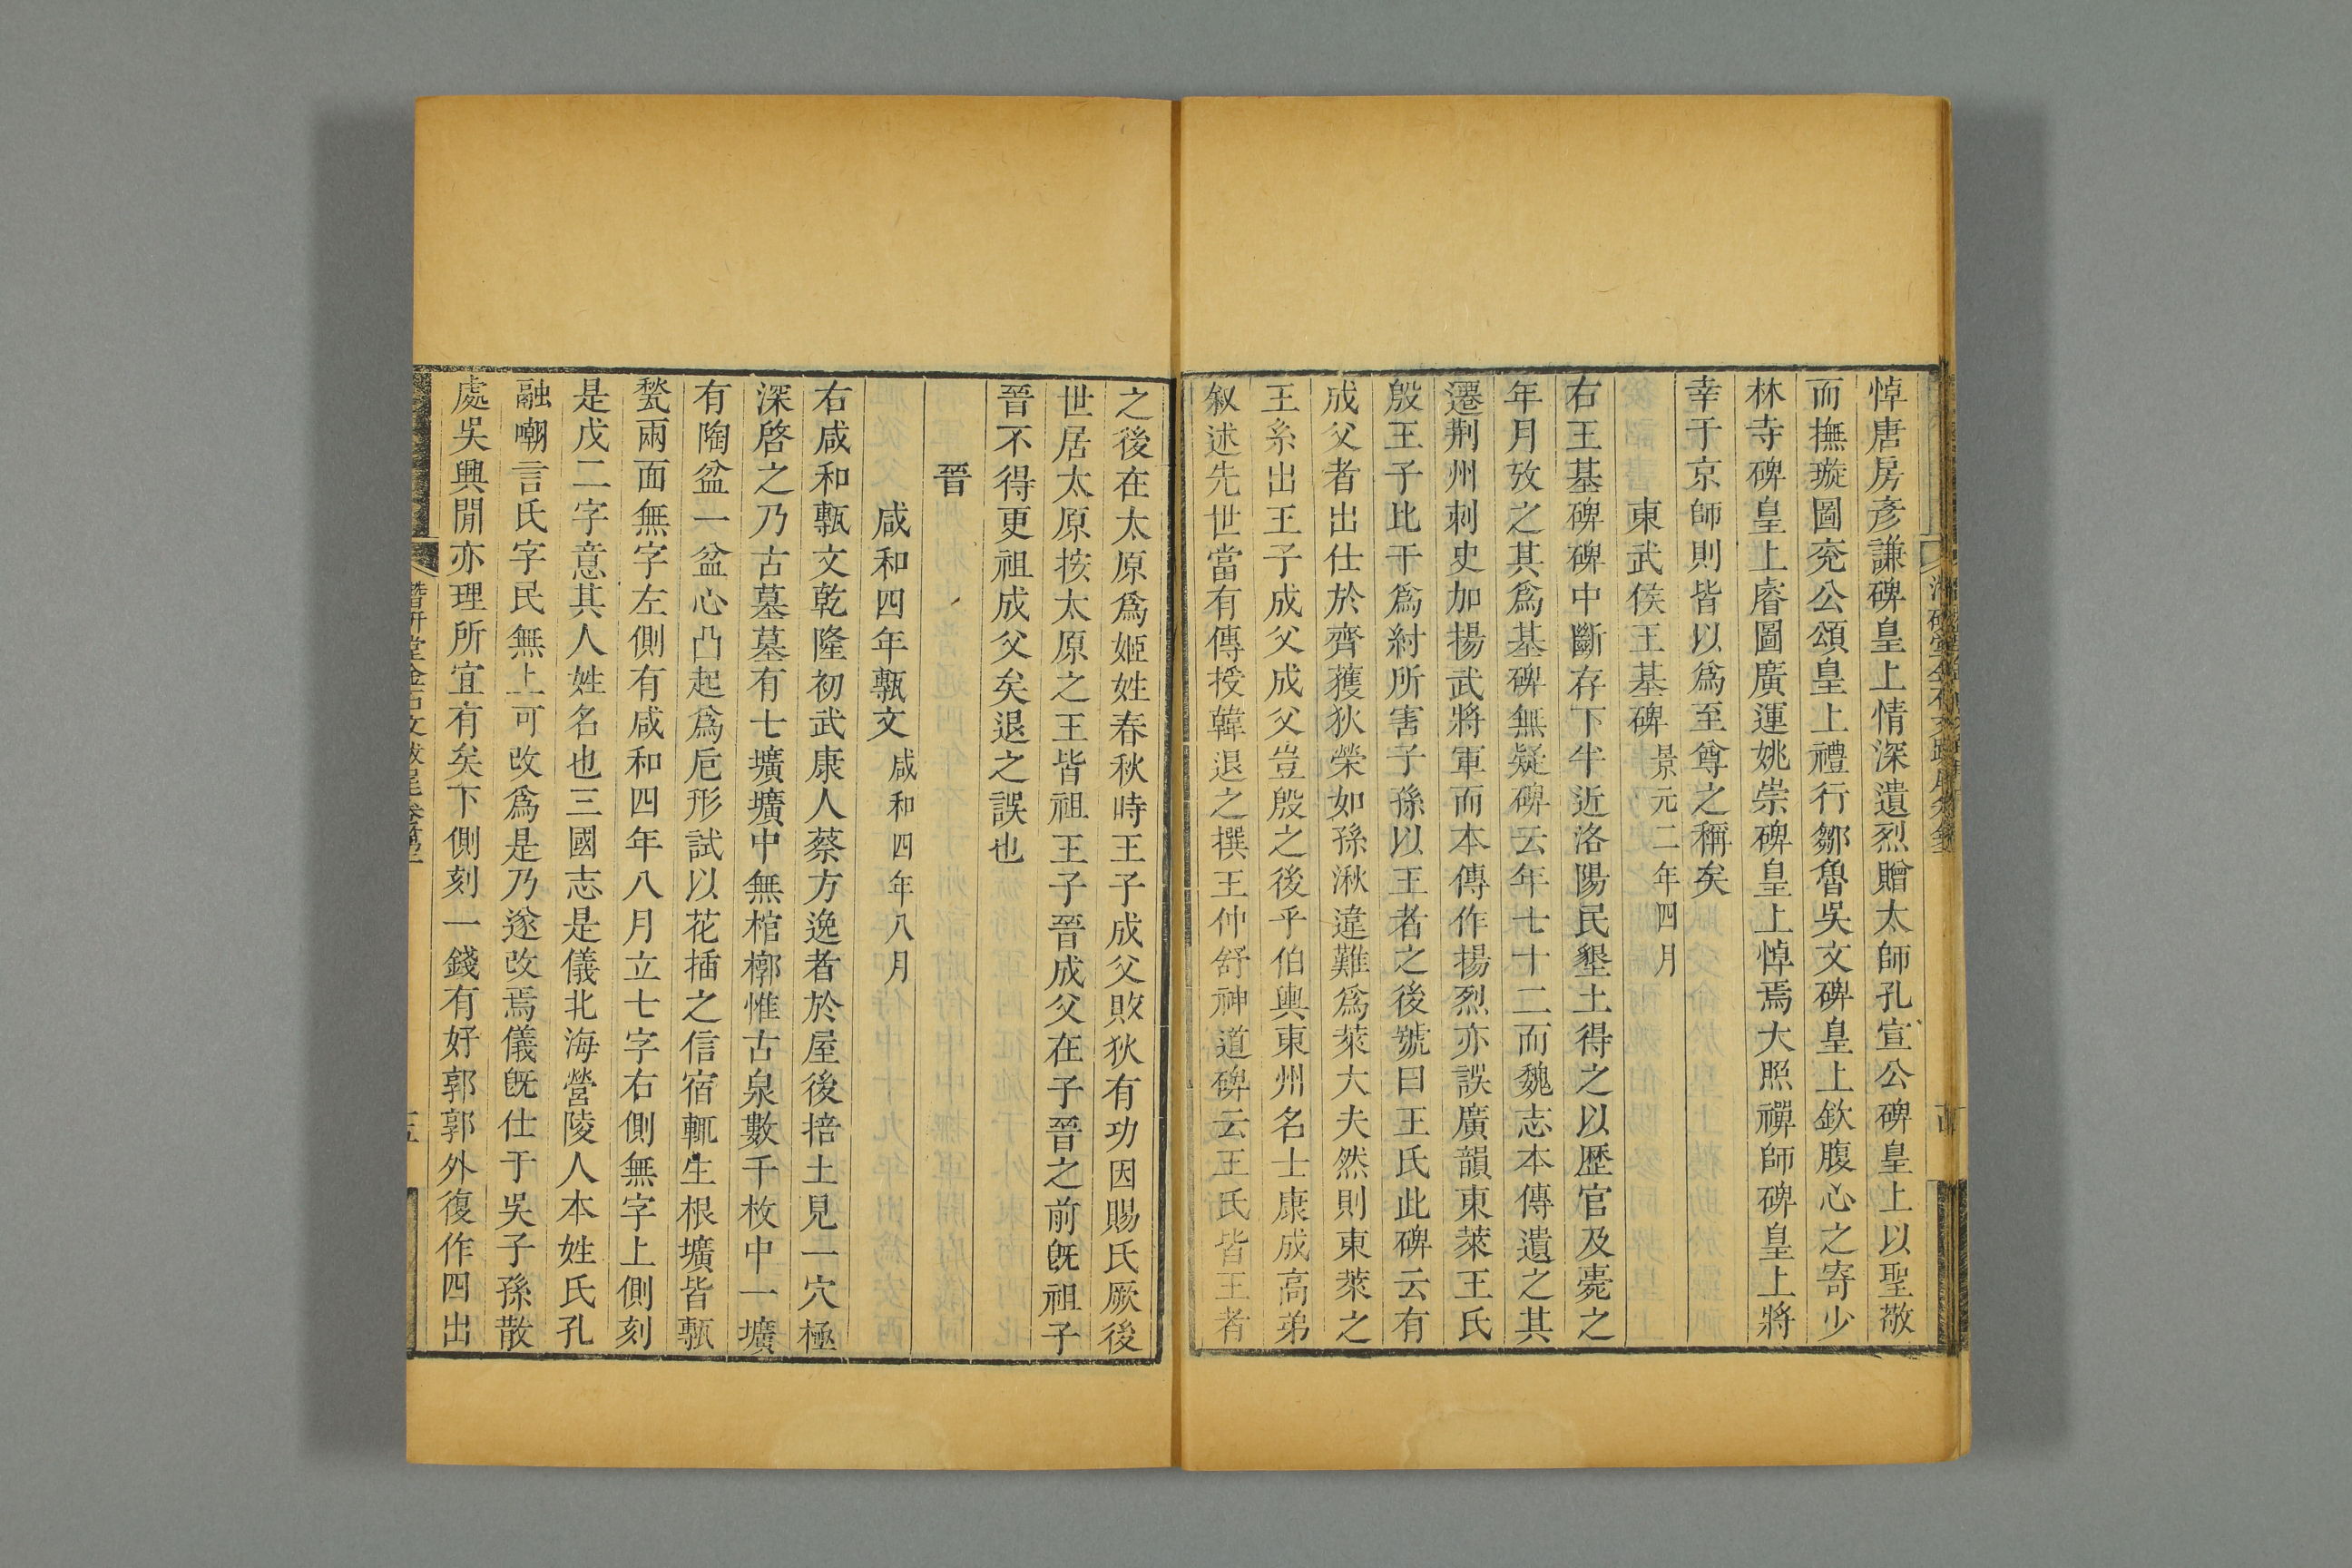 悼唐房彥謙碑皇上情深遺烈贈太師孔宣公碑皇上以聖敬
而撫璇圖兖公頌皇上禮行鄒魯吳文碑皇上欽腹心之寄少
林寺碑皇上睿圖廣運姚崇碑皇上悼焉大照禪師碑皇上將
幸于京師則皆以爲至尊之稱矣
東武侯王基碑 景元二年四月
右王基碑碑中斷存下半近洛陽民墾土得之以歴官及薨之
年月攷之其爲基碑無疑碑云年七十二而魏志本傳遺之其
遷荆州刺史加揚武將軍而本傳作揚烈亦誤廣韻東萊王氏
殷王子比干爲紂所害子孫以王者之後號曰王氏此碑云有
成父者出仕於齊獲狄榮如孫湫違難爲萊大夫然則東萊之
王系出王子成父成父豈殷之後乎伯輿東州名士康成高弟
叙述先世當有傳授韓退之撰王仲舒神道碑云王氏皆王者
之後在太原爲姬姓春秋時王子成父敗狄有功因賜氏厥後
世居太原按太原之王皆祖王子晉成父在子晉之前旣祖子
晉不得更祖成父矣退之誤也
晉
咸和四年甎文 咸和四年八月
右咸和甎文乾隆初武康人蔡方逸者於屋後掊土見一穴極
深啓之乃古墓墓有七壙壙中無棺槨惟古泉數千枚中一壙
有陶盆一盆心凸起爲卮形試以花插之信宿輒生根壙皆甎
甃兩面無字左側有咸和四年八月立七字右側無字上側刻
是戊二字意其人姓名也三國志是儀北海營陵人本姓氏孔
融嘲言氏字民無上可改爲是乃遂改焉儀旣仕于吳子孫散
處吳興閒亦理所宜有矣下側刻一錢有好郭郭外復作四出